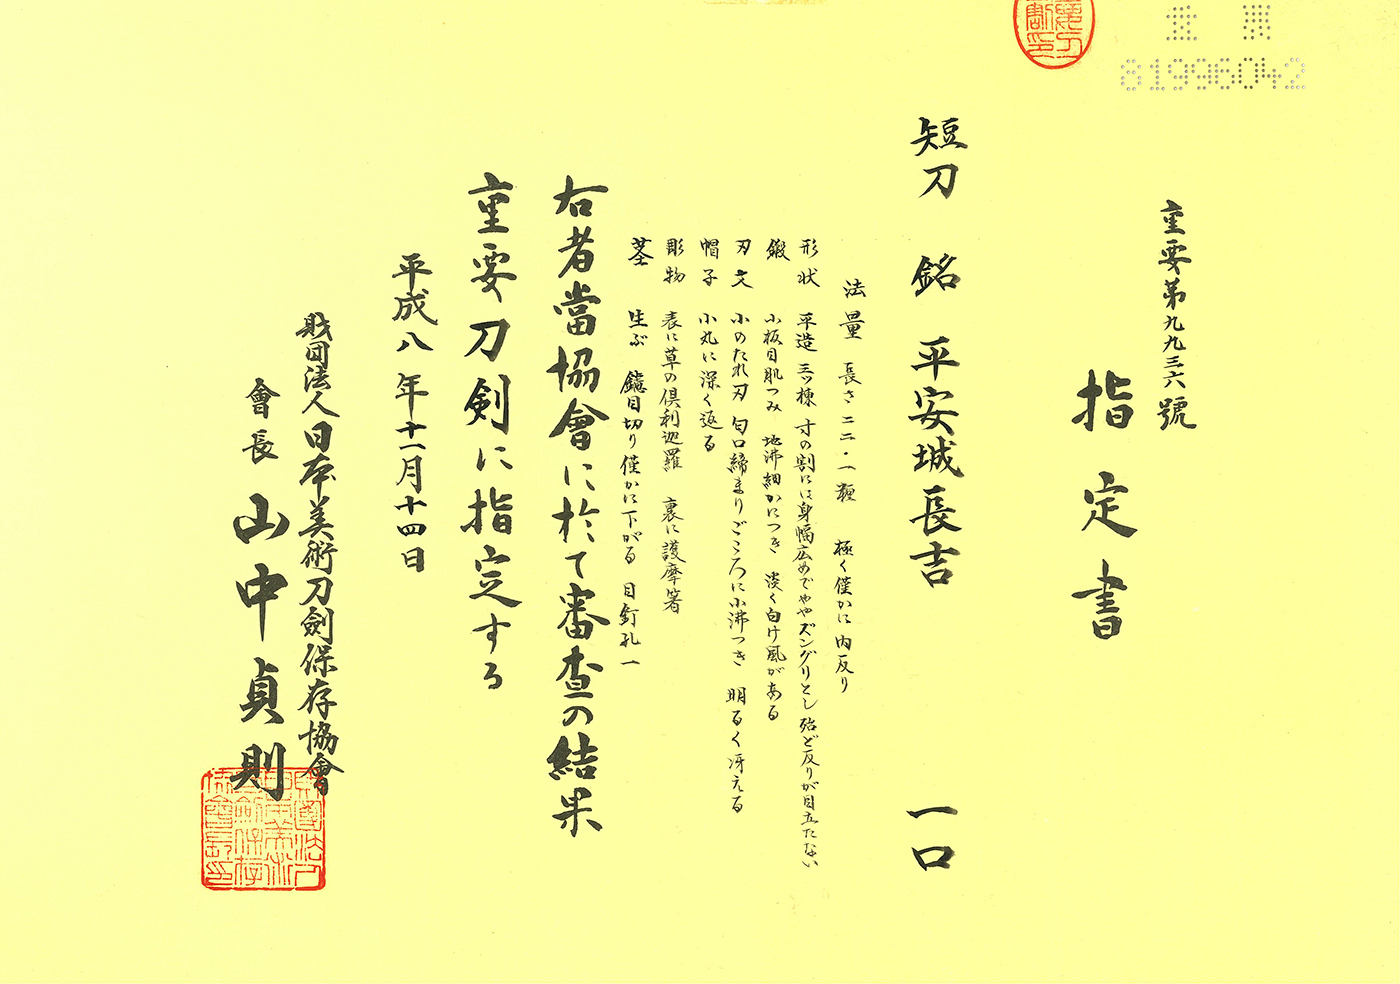 重要
81996042
重要第九九三六號
指定書
短刀 銘 平安城長吉 一口
法量 長さ二二・一糎 極く僅かに内反り
形状 平造 三ッ棟 寸の割には身幅広めでややズングリとし 殆ど反りが目立たない
鍛 小板目肌つみ 地沸細かにつき 淡く白け風がある
刃文 小のたれ刃 匂口締まりごころに小沸つき 明るく冴える
帽子 小丸に深く返る
彫物 表に草の倶利迦羅 裏に護摩箸
茎 生ぶ 鑢目切り僅かに下がる 目釘孔一
右者當協會に於て審査の結果
重要刀剣に指定する
平成八年十一月十四日
財団法人日本美術刀劍保存協會
會長 山中貞則